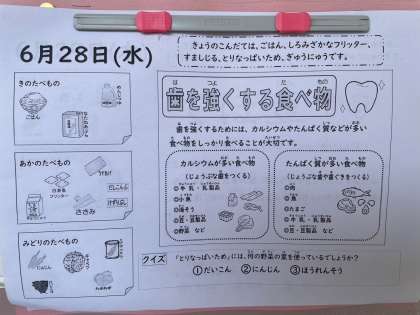 6月28日(水)
きょうのこんだては、ごはん、しろみざかなフリッター、
すましじる、とりなっぱいため、ぎゅうにゅうです。
きのたべもの
ごはん
あかのたべもの
白身魚
フリッター
ささみ
みどりのたべもの
にんじん
歯を強くする食べ物
歯を強くするためには、カルシウムやたんぱく質などが多い
食べ物をしっかり食べることが大切です。
カルシウムが多い食べ物
(じょうぶな歯をつくる)
◎牛乳・乳製品
◎小魚
◎海そう
◎豆・豆製品
◎野菜 など
たんぱく質が多い食べ物
(じょうぶな歯や歯ぐきをつくる)
◎肉
◎魚
◎たまご
◎牛乳・乳製品
◎豆・豆製品 など
クイズ 「とりなっぱいため」には、何の野菜の葉を使っているでしょうか?
①だいこん ②にんじん ③ほうれんそう